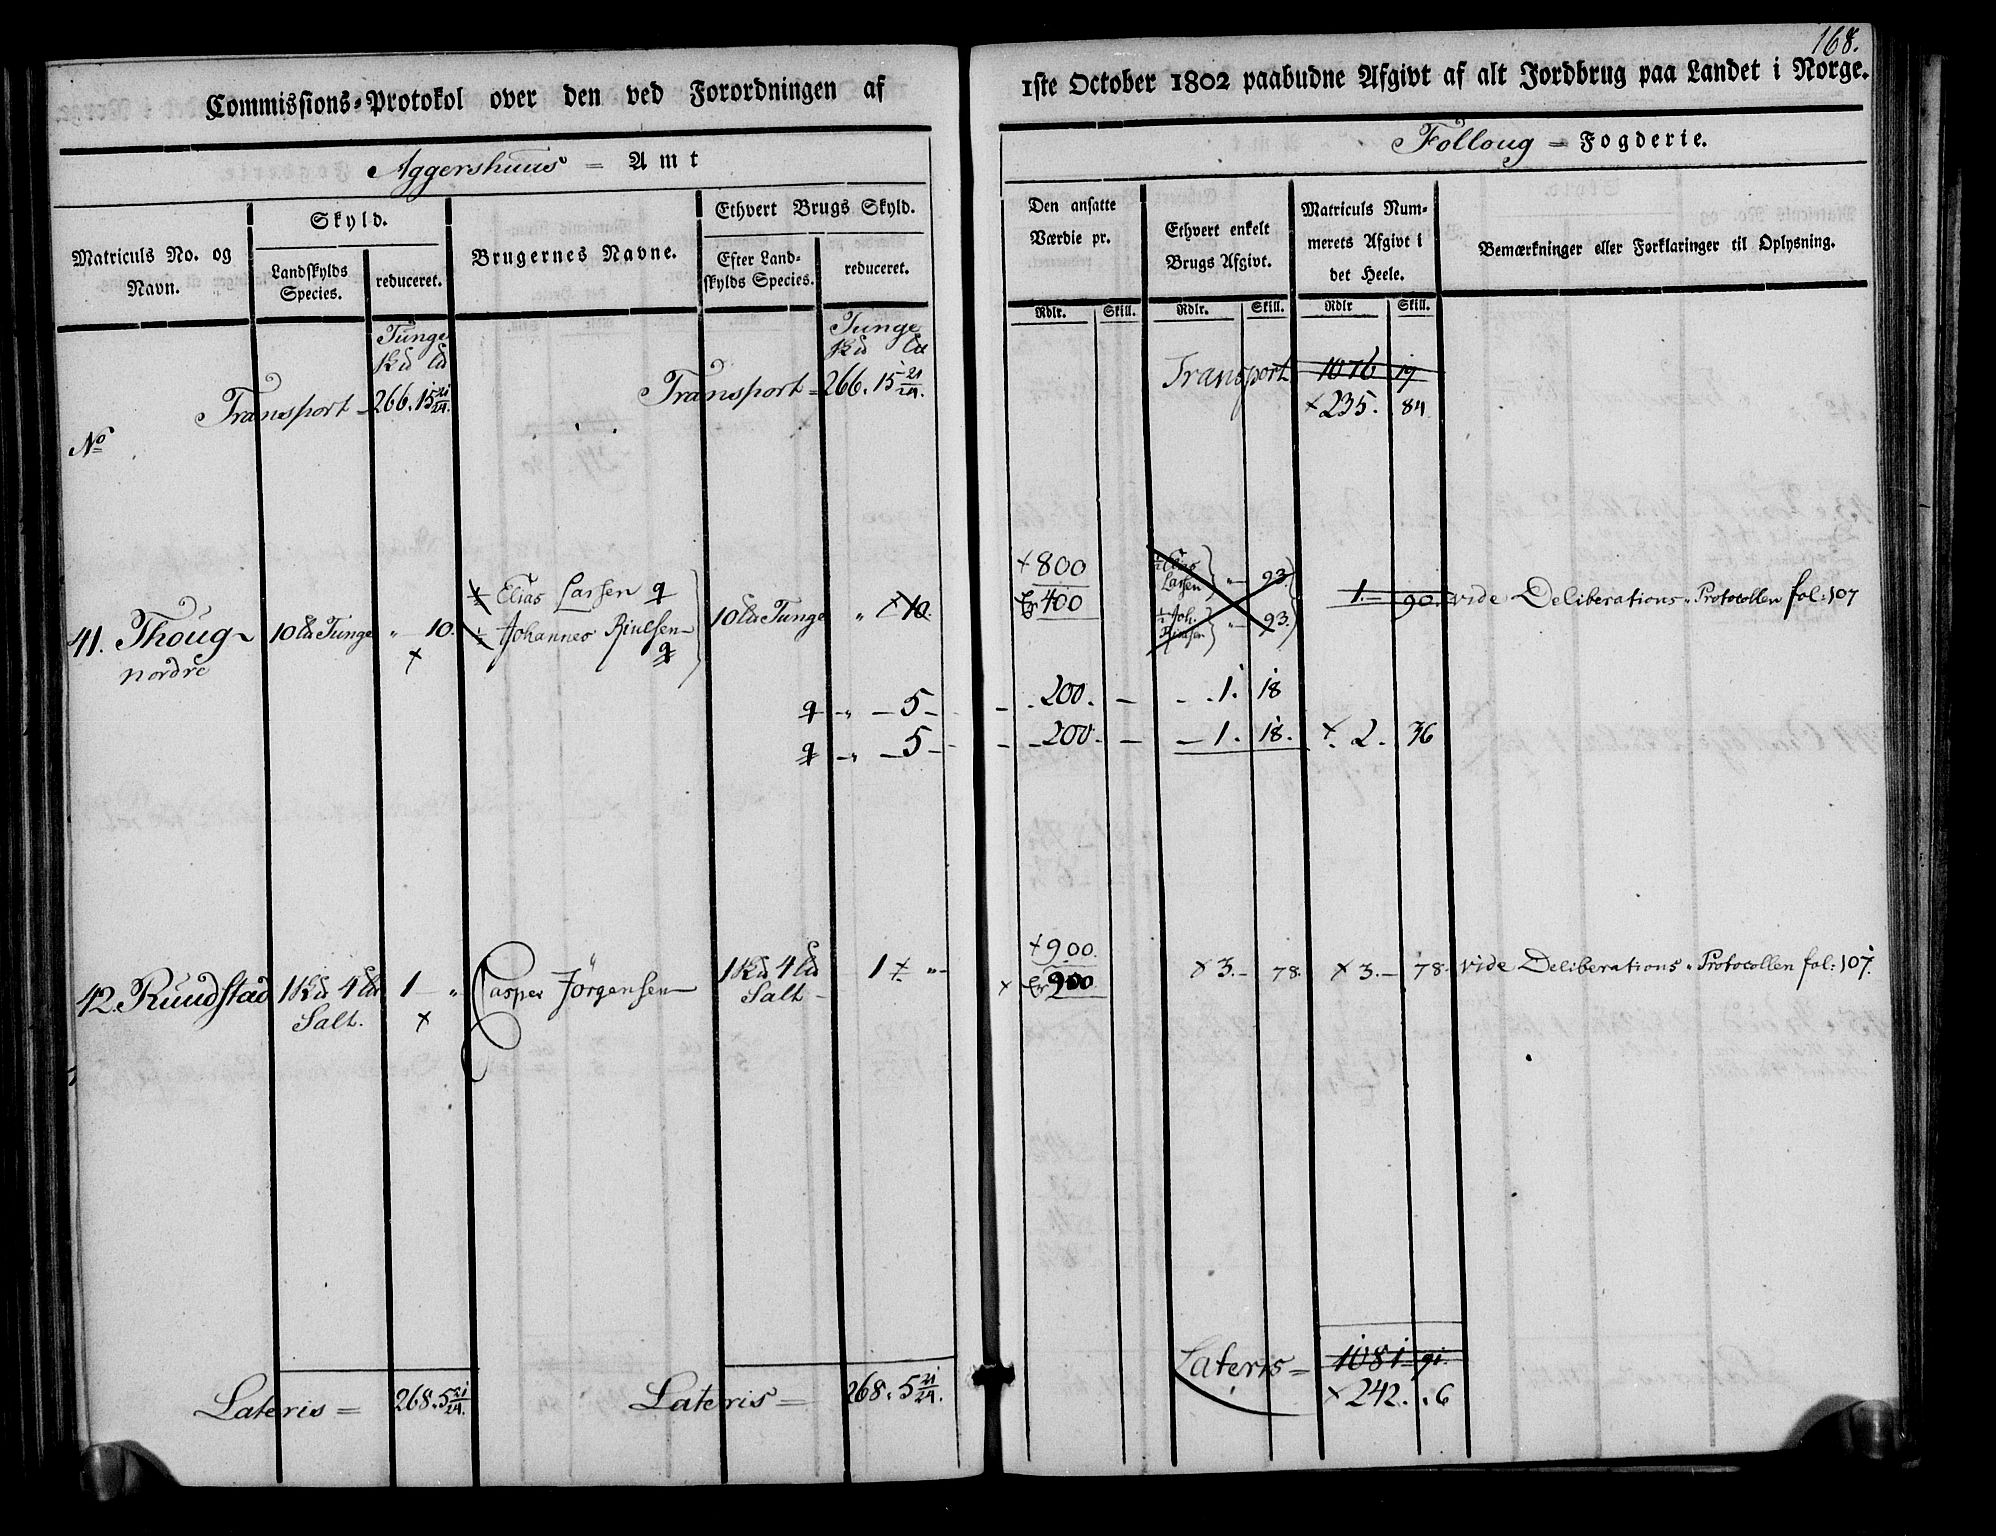 168.
Commissions=Protokol over den ved Forordningen af
1ste October 1802 paabudne Afgivt af alt Jordbrug paa Landet i Norge.
Aggershuus = Amt
Folloug = Fogderie.
Matriculs No. og Navn.
Skyld.
Landskylds Species.
reduceret.
Brugernes Navne.
Ethvert Brugs Skyld.
Efter Land-
skylds Species.
reduceret.
Den ansatte
Værdie pr.
Ethvert enkelt
Brugs Afgivt.
Matriculs Num-
merets Afgivt i
det Heele.
Bemærkninger eller Forklaringer til Oplysning.
Rdlr. Skill. Rdlr. Skill. Rdlr Skill.
Tunge
Tunge
Transport = 266. 15 21/24.
Transport = 266. 15 21/24.
Transport 1076 19
× 235. 84
No
41. Thoug
nordre
10 Tunge " 10.
×
½ Elias Larsen
½ Johannes
10 Tunge " × 10.
× 800
400
½ Elias
Larsen " 93.
½ Joh. " 93.
1. 90. vide Deliberations Protocollen fol: 107
" 5 200. 1. 18
" 5 200. 1. 18. × 2. 36
42. Ruudstad 1 4
Salt. 1 "
×
Casper Jörgensen
1 4
Salt 1 × "
× 900.
× 900
× 3. 78. × 3. 78. vide Deliberations Protocollen fol: 107.
Lateris = 268. 5 21/24.
Lateris = 268. 5 21/24.
Lateris = 1081 91.
× 242. 6